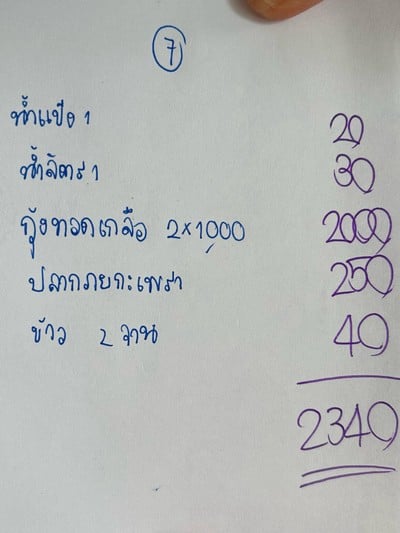 7
น้ำแข็ง 1 20
น้ำลิตร 1 30
กุ้งทอดเกลือ 2×1,000 2000
ปลากรายกะเพรา 250
ข้าว 2 จาน 40
2340